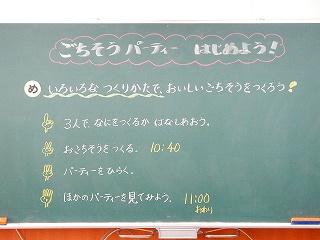 ごちそう パーティー はじめよう!
め いろいろな つくりかたで、おいしい ごちそうをつくろう!
3人で、なにをつくるか はなしあおう。
おごちそうを つくる。 10:40
パーティーを ひらく。
ほかのパーティーを見てみよう。 11:00
おわり